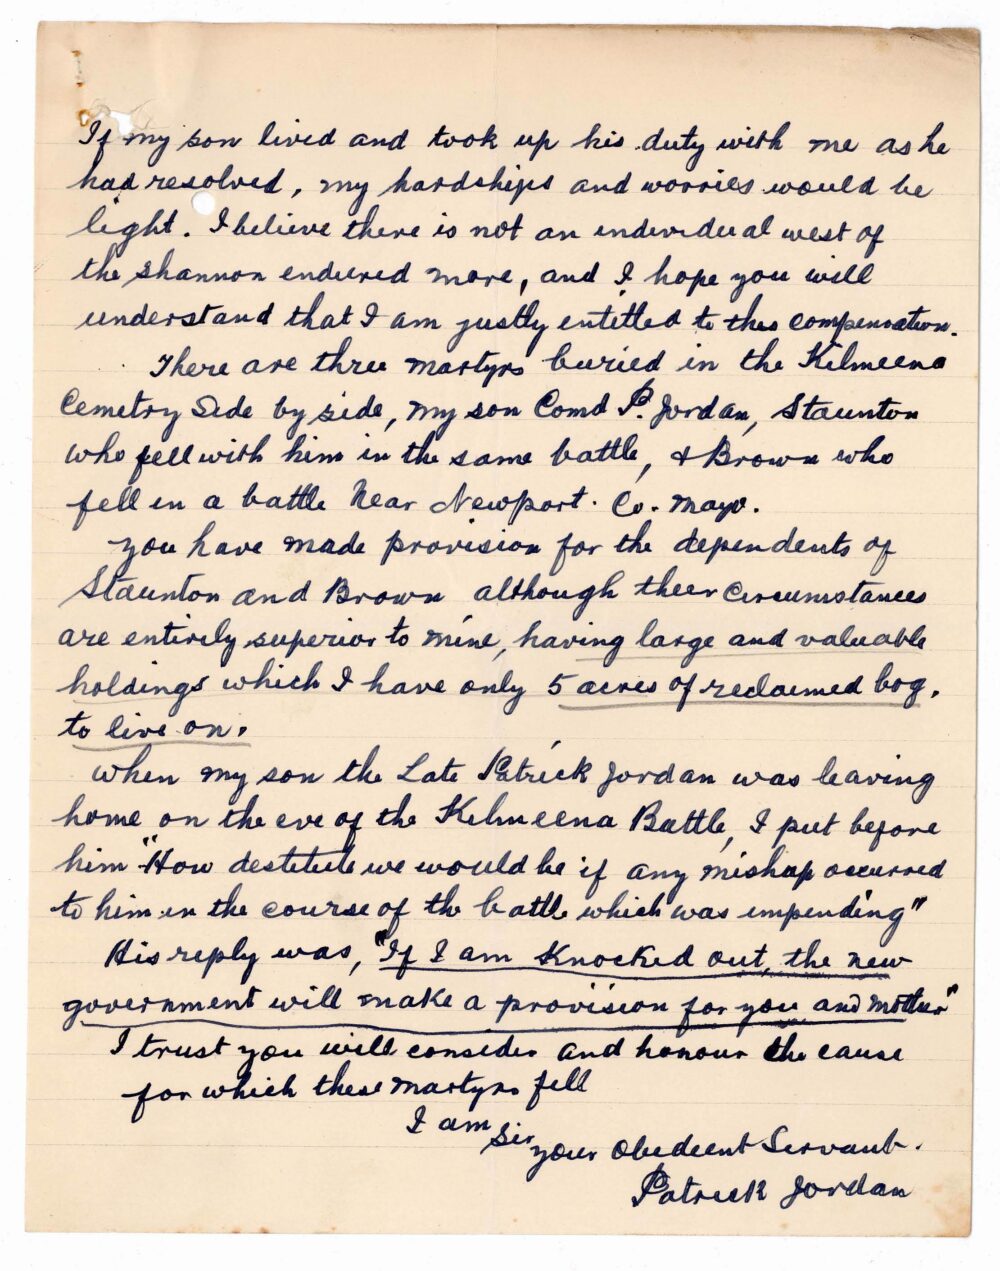 If my son lived and took up his duty with me as he
had resolved, my hardships and worries would be
light. I believe there is not an individual west of
the Shannon endured more, and I hope you will
understand that I am justly entitled to this compensation.
There are three martyrs buried in the Kilmeena
Cemetry Side by side, my son Comd P. Jordan, Staunton
who fell with him in the same battle, & Brown who
fell in a battle near Newport. Co. Mayo.
You have made provision for the dependents of
Staunton and Brown although their circumstances
are entirely superior to mine, having large and valuable
holdings which I have only 5 acres of reclaimed bog.
to live on.
When my son the Late Patrick Jordan was leaving
home on the eve of the Kilmeena Battle, I put before
him "How destitute we would be if any mishap occurred
to him in the course of the battle which was impending"
His reply was, "If I am Knocked out, the new
government will make a provision for you and mother"
I trust you will consider and honour the cause
for which these martyrs fell
I am
Sir
your Obedient Servant.
Patrick Jordan